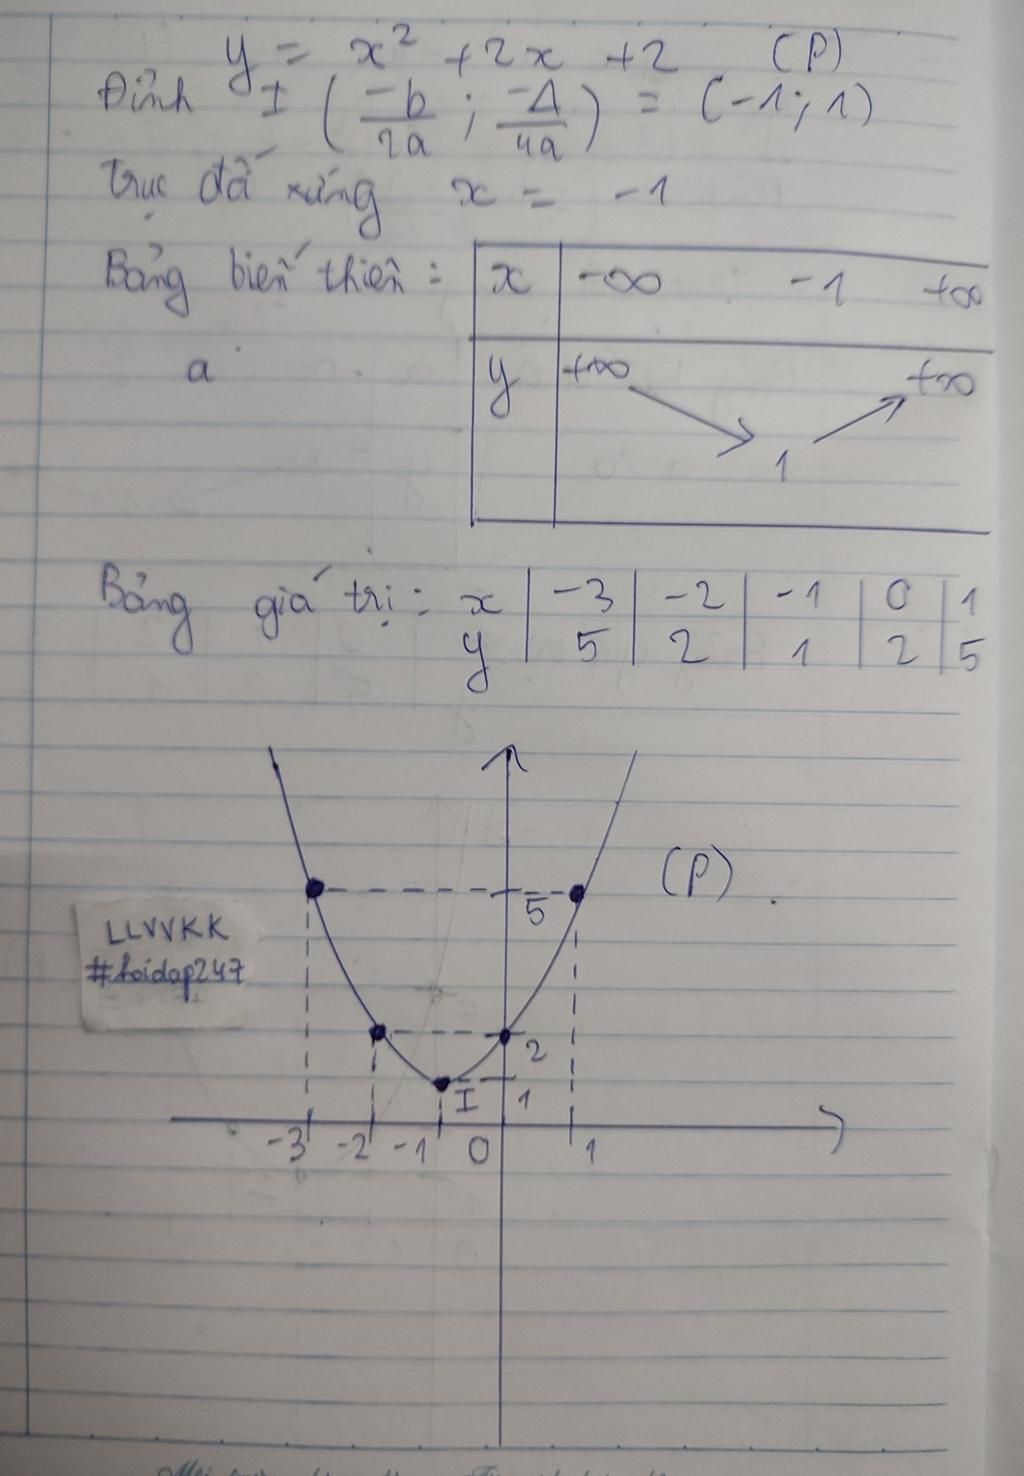 y = x² + 2x + 2 (P)
Đỉnh I (-b/2a ; -Δ/4a) = (-1; 1)
Trục đố xứng x = -1
Bảng biến thiên : x -∞ -1 +∞
a y +∞ 1 +∞
Bảng giá trị : x | -3 | -2 | -1 | 0 | 1
y | 5 | 2 | 1 | 2 | 5
(P)
5
LLVVKK
#hoidap247
2
I 1
-3 -2 -1 0 1